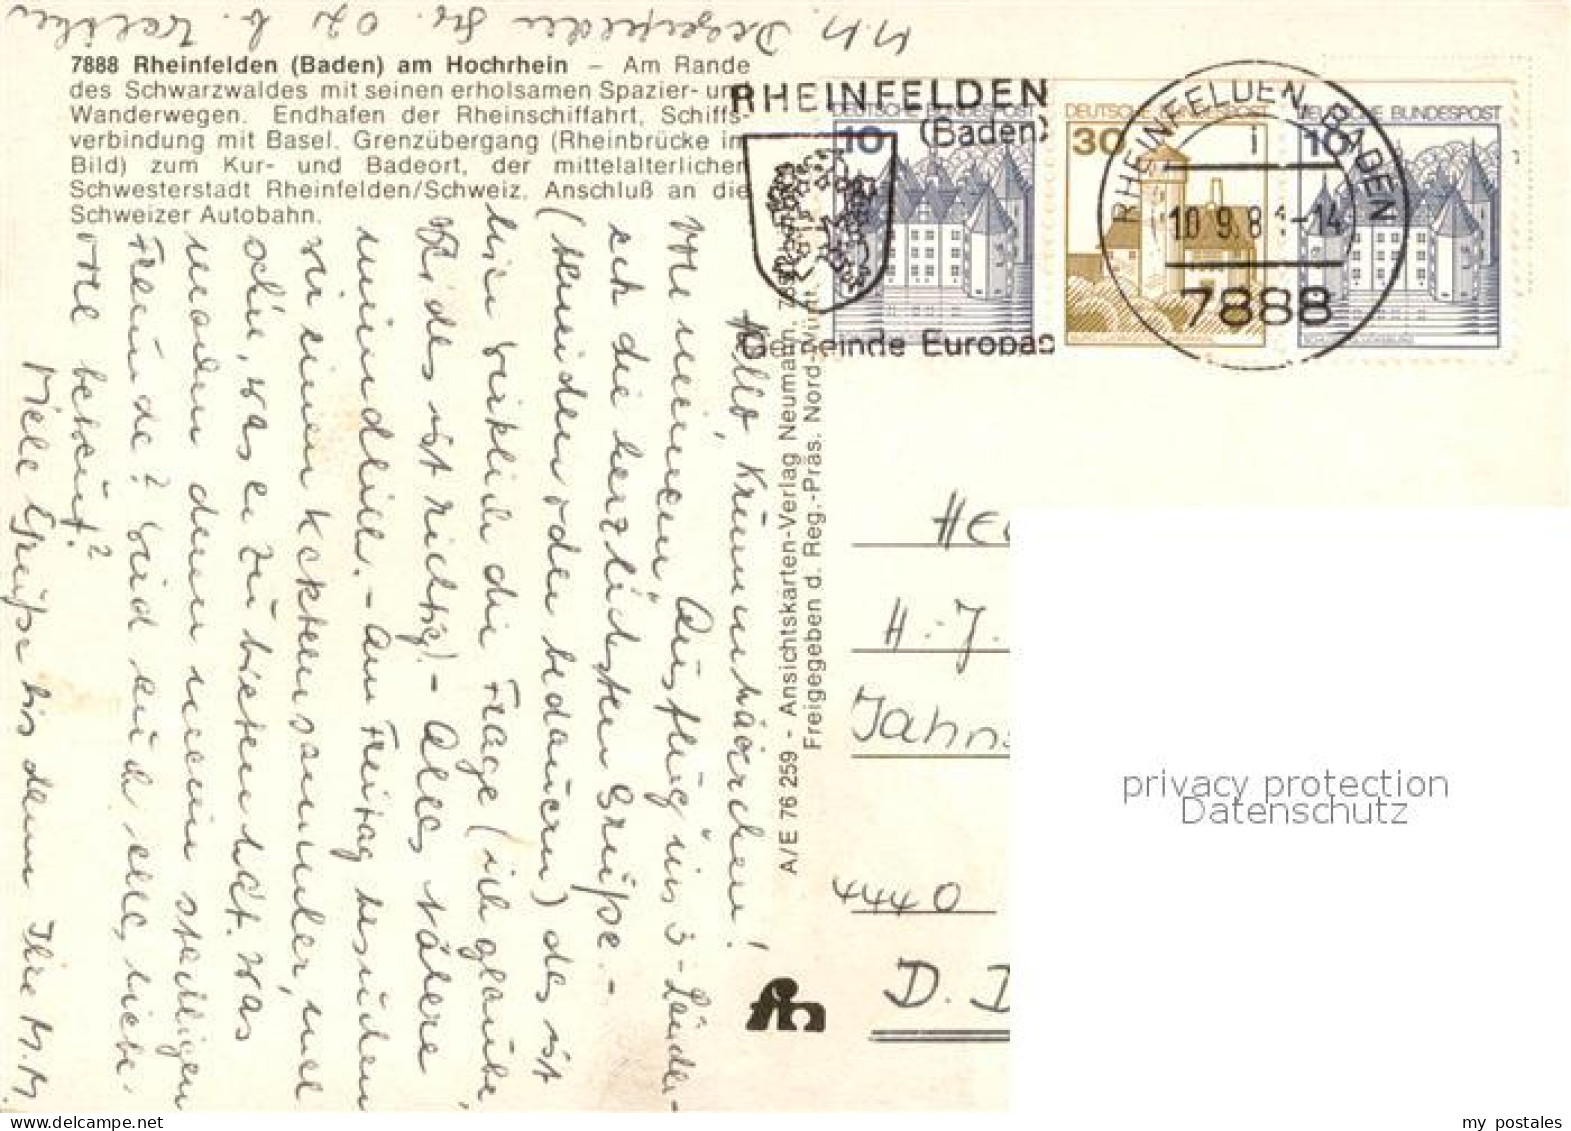 M.M. Degerfelden Str. 02 b.
7888 Rheinfelden (Baden) am Hochrhein – Am Rande
des Schwarzwaldes mit seinen erholsamen Spazier- und
Wanderwegen. Endhafen der Rheinschiffahrt, Schiffs-
verbindung mit Basel. Grenzübergang (Rheinbrücke im
Bild) zum Kur- und Badeort, der mittelalterlichen
Schwesterstadt Rheinfelden/Schweiz. Anschluß an die
Schweizer Autobahn.
RHEINFELDEN
(Baden)
Gemeinde Europas
DEUTSCHE BUNDESPOST
10
DEUTSCHE BUNDESPOST
30
DEUTSCHE BUNDESPOST
10
RHEINFELDEN, BADEN
i
10.9.8 -14
7888
Hallo, Krümmwäerchen!
Von meinem Ausflug ins 3-Länder-
eck die herzlichsten Grüße. -
(beneiden oder bedauern) das ist
hier wirklich die Frage (ich glaube
beides ist richtig). - Alles Nähere
mündlich. - Am Freitag besuchen
wir einen Kakteensammler, mal
sehn, was er zu bieten hat. Was
machen denn meine stacheligen
Freunde? Sind auch alle, liebe-
voll betreut?
Viele Grüße bis dann Ihre M.M.
A/E 76 259 - Ansichtskarten-Verlag Neumann,
Freigegeben d. Reg.-Präs. Nord-Württ.
H.J.
Jahns
4440
D.D
privacy protection
Datenschutz
my postales